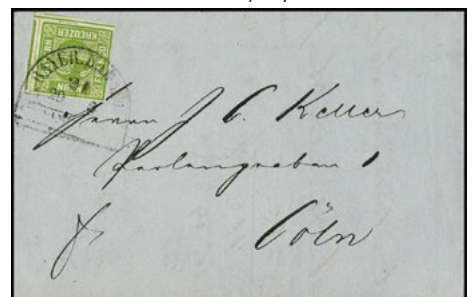 KREUZER
21
Herrn J C. Keller
Perlengraben 1
Cöln